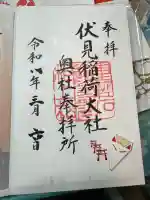 奉拝
伏見稲荷大社
奥社奉拝所
令和八年三月